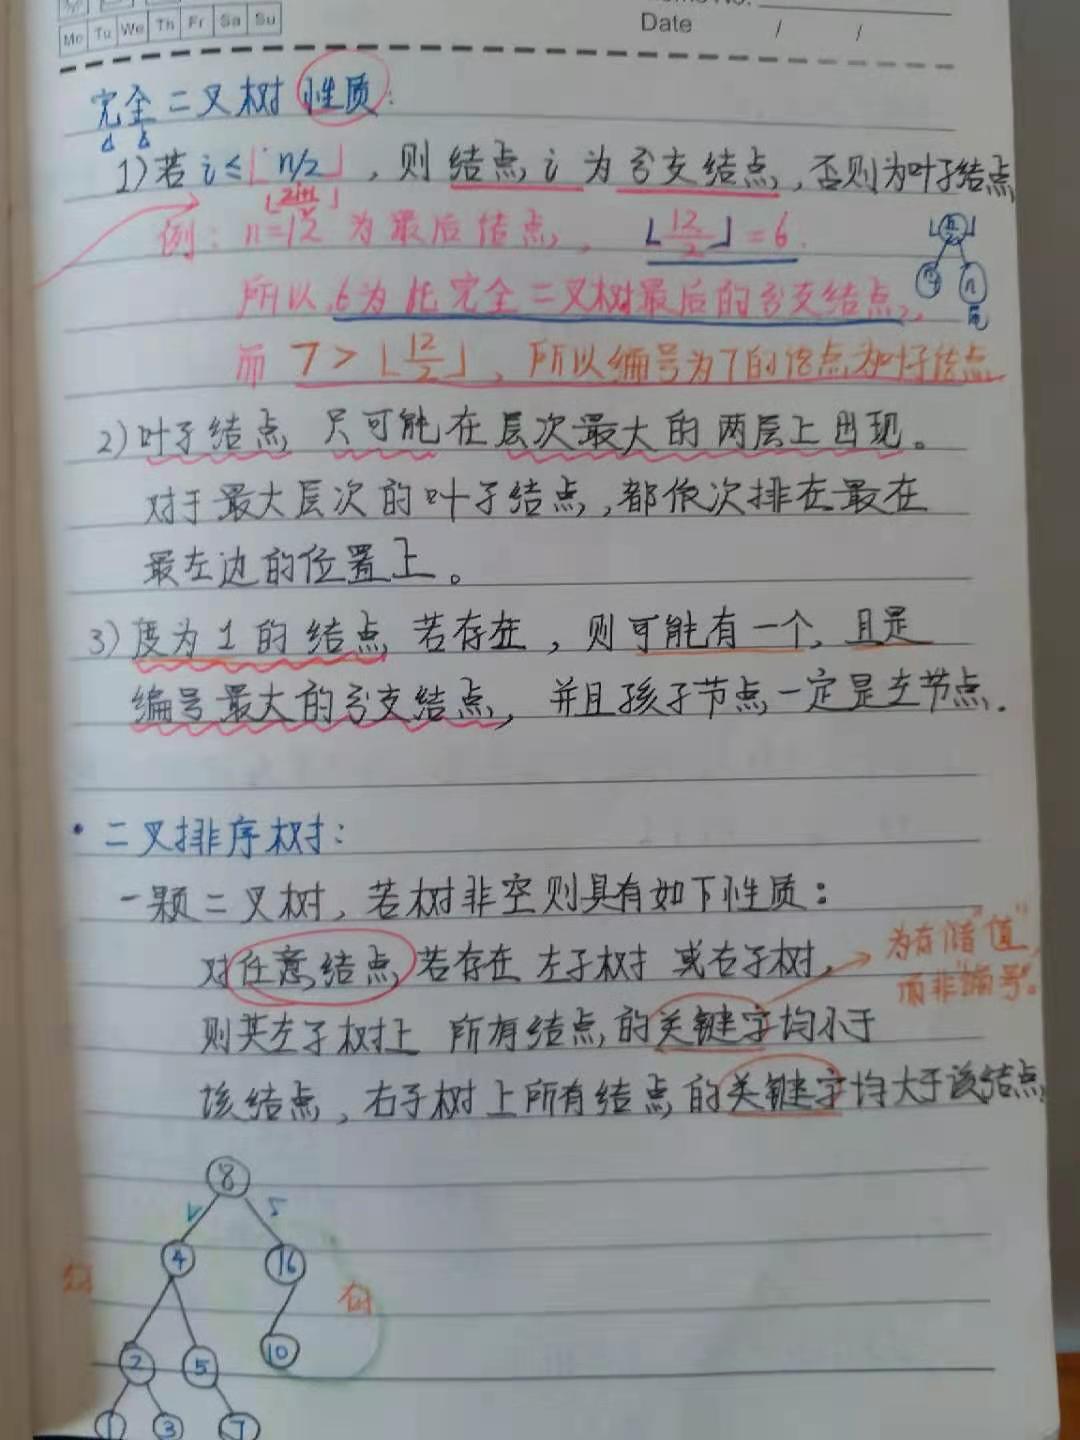 Mo Tu We Th Fr Sa Su
Date / /
完全二叉树性质:
1)若i≤⌊n/2⌋,则结点i为分支结点,否则为叶子结点
例: n=12 为最后结点, ⌊12/2⌋=6.
所以,6为此完全二叉树最后的分支结点,
而 7>⌊12/2⌋,所以编号为7的结点为叶子结点
n
尾
2)叶子结点 只可能在层次最大的两层上出现。
对于最大层次的叶子结点,都依次排在最在
最左边的位置上。
3)度为1的结点 若存在,则可能有一个,且是
编号最大的分支结点,并且孩子节点一定是左节点.
• 二叉排序树:
一颗二叉树,若树非空则具有如下性质:
对任意结点 若存在 左子树 或右子树,
为存储"值",
而非"编号"。
则其左子树上 所有结点的关键字均小于
该结点,右子树上所有结点的关键字均大于该结点
8
4 16
2 5 10
1 3 7